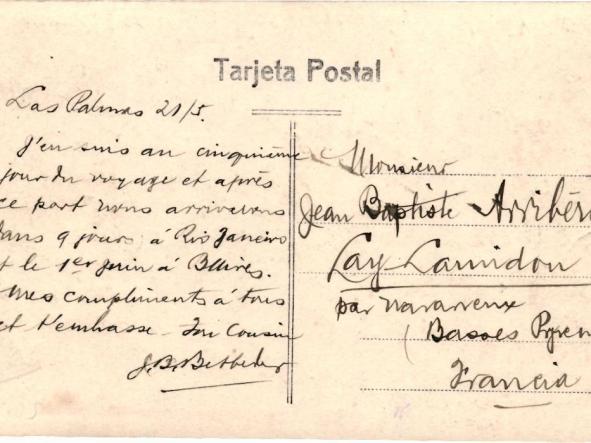 Tarjeta Postal
Las Palmas 21/5.
J'en suis au cinquième
jour du voyage et après
ce port nous arriverons
dans 9 jours à Rio Janeiro
et le 1er Juin à BAires.
Mes compliments à tous
et t'embrasse. Ton Cousin
J. B.
Monsieur
Jean Baptiste Arribère
Lay Lamidou
par Navarrenx
(Basses Pyren
Francia